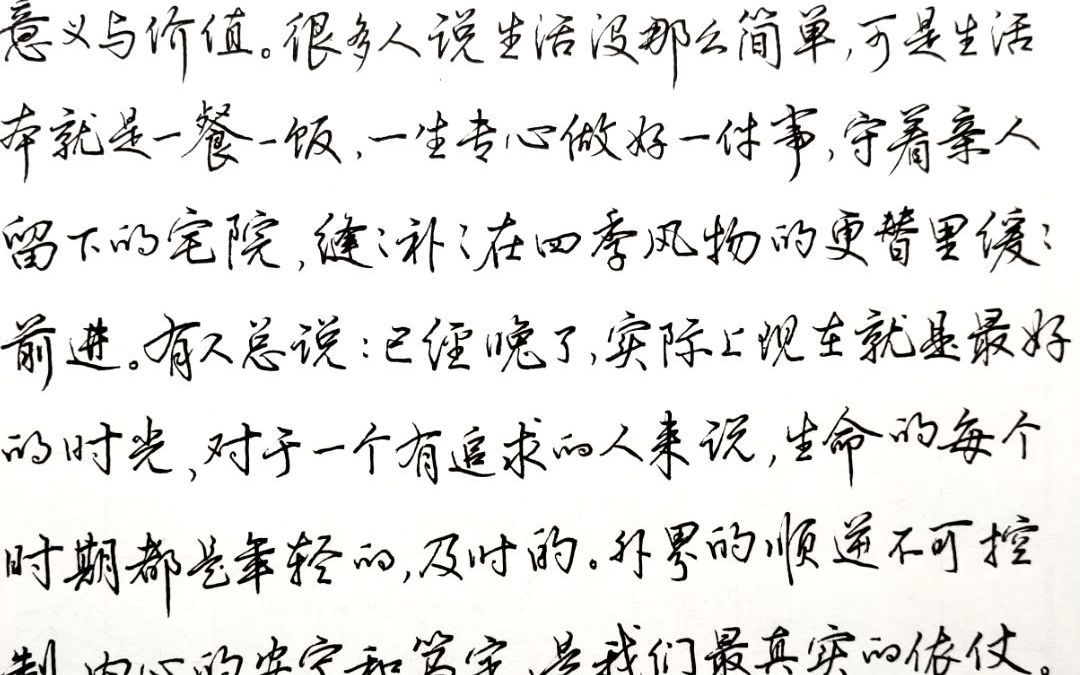 意义与价值。很多人说生活没那么简单,可是生活
本就是一餐一饭,一生专心做好一件事,守着亲人
留下的宅院,缝:补:在四季风物的更替里缓:
前进。有人总说:已经晚了,实际上现在就是最好
的时光,对于一个有追求的人来说,生命的每个
时期都是年轻的,及时的。外界的顺逆不可控
制,内心的安宁和笃定,是我们最真实的依仗。